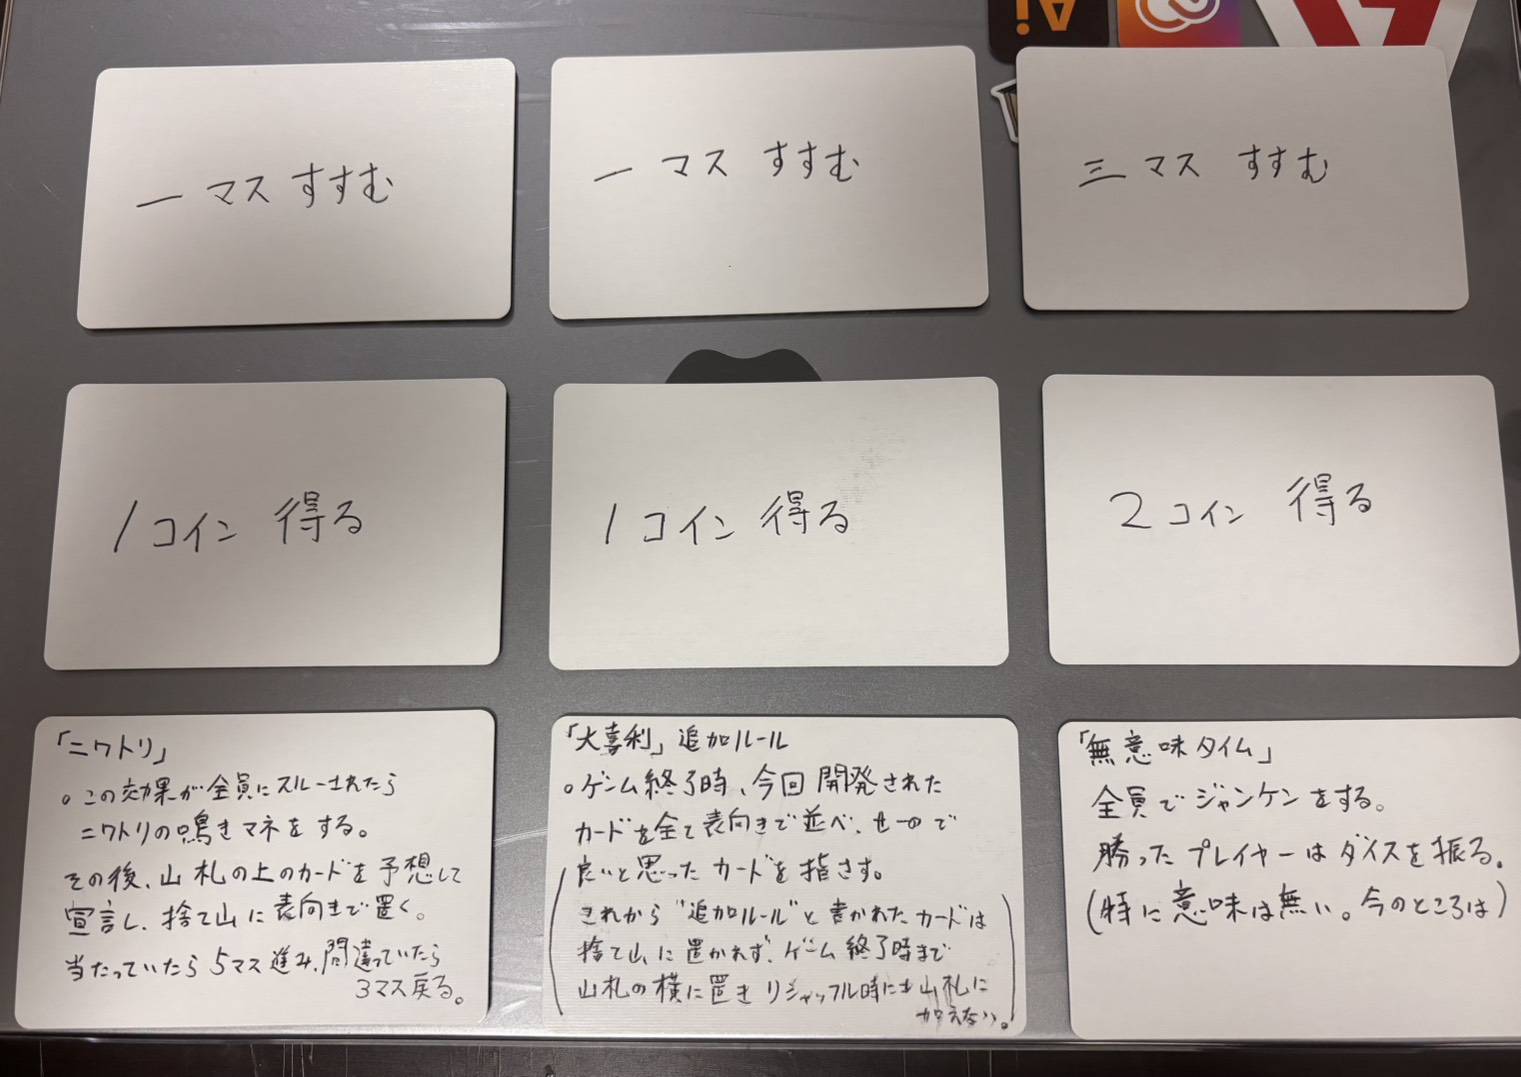 Ai
一 マス すすむ
一 マス すすむ
三 マス すすむ
1 コイン 得る
1 コイン 得る
2 コイン 得る
「ニワトリ」
。この効果が全員にスルーされたら
ニワトリの鳴きマネをする。
その後、山札の上のカードを予想して
宣言し、捨て山に表向きで置く。
当たっていたら5マス進み、間違っていたら
3マス戻る。
「大喜利」追加ルール
。ゲーム終了時、今回開発された
カードを全て表向きで並べ、せーので
良いと思ったカードを指さす。
(これから"追加ルール"と書かれたカードは
捨て山に置かれず、ゲーム終了時まで
山札の横に置きリシャッフル時にも山札に
加えない。)
「無意味タイム」
全員でジャンケンをする。
勝ったプレイヤーはダイスを振る。
(特に意味は無い。今のところは)